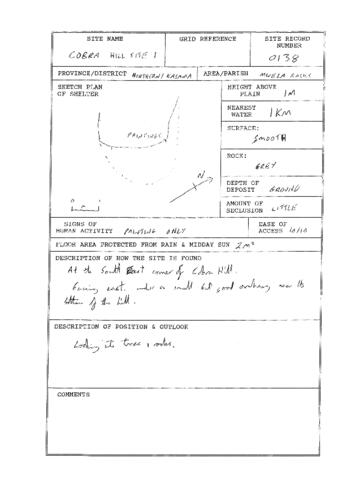 SITE NAME
COBRA HILL SITE 1
GRID REFERENCE
SITE RECORD
NUMBER
0138
PROVINCE/DISTRICT NORTHERN/ KASAMA
AREA/PARISH MWELA ROCKS
SKETCH PLAN
OF SHELTER
PAINTINGS
N
HEIGHT ABOVE
PLAIN 1M
NEAREST
WATER 1KM
SURFACE:
SMOOTH
ROCK:
GREY
DEPTH OF
DEPOSIT GROUND
AMOUNT OF
SECLUSION LITTLE
SIGNS OF
HUMAN ACTIVITY PAINTING ONLY
EASE OF
ACCESS 10/10
FLOOR AREA PROTECTED FROM RAIN & MIDDAY SUN 2m²
DESCRIPTION OF HOW THE SITE IS FOUND
At the South East corner of Cobra Hill.
Facing east under a small but good overhang near the
bottom of the hill.
DESCRIPTION OF POSITION & OUTLOOK
Looking into trees & rocks.
COMMENTS